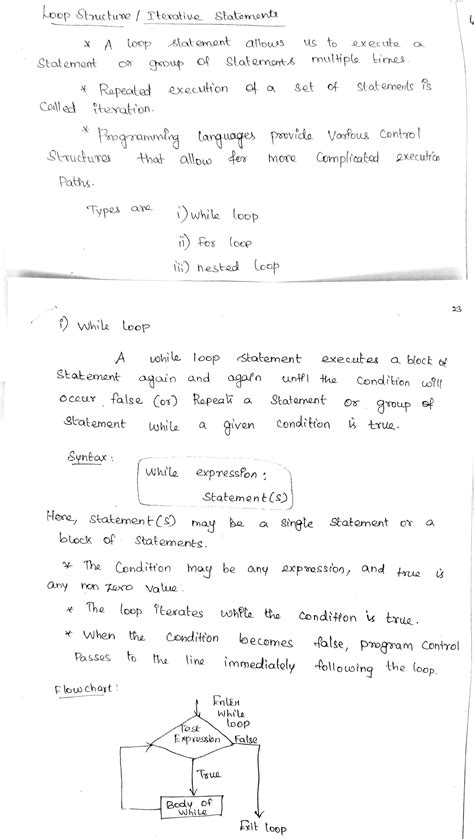 Loop Structure / Iterative Statements
* A loop statement allows us to execute a
Statement or group of statements multiple times.
* Repeated execution of a set of statements is
Called iteration.
* Programming languages provide Various Control
Structures that allow for more Complicated execution
Paths.
Types are i) While loop
ii) For loop
iii) nested loop
23
i) While loop
A while loop statement executes a block of
Statement again and again until the Condition will
occur false (or) Repeats a Statement or group of
Statement while a given Condition is true.
Syntax:
While expression:
Statement(s)
Here, Statement(s) may be a single statement or a
block of statements.
* The Condition may be any expression, and true is
any non zero value.
* The loop iterates while the condition is true.
* When the Condition becomes false, program control
Passes to the line immediately following the loop.
Flowchart:
Enter
While
loop
Test
Expression
False
True
Body of
While
Exit loop